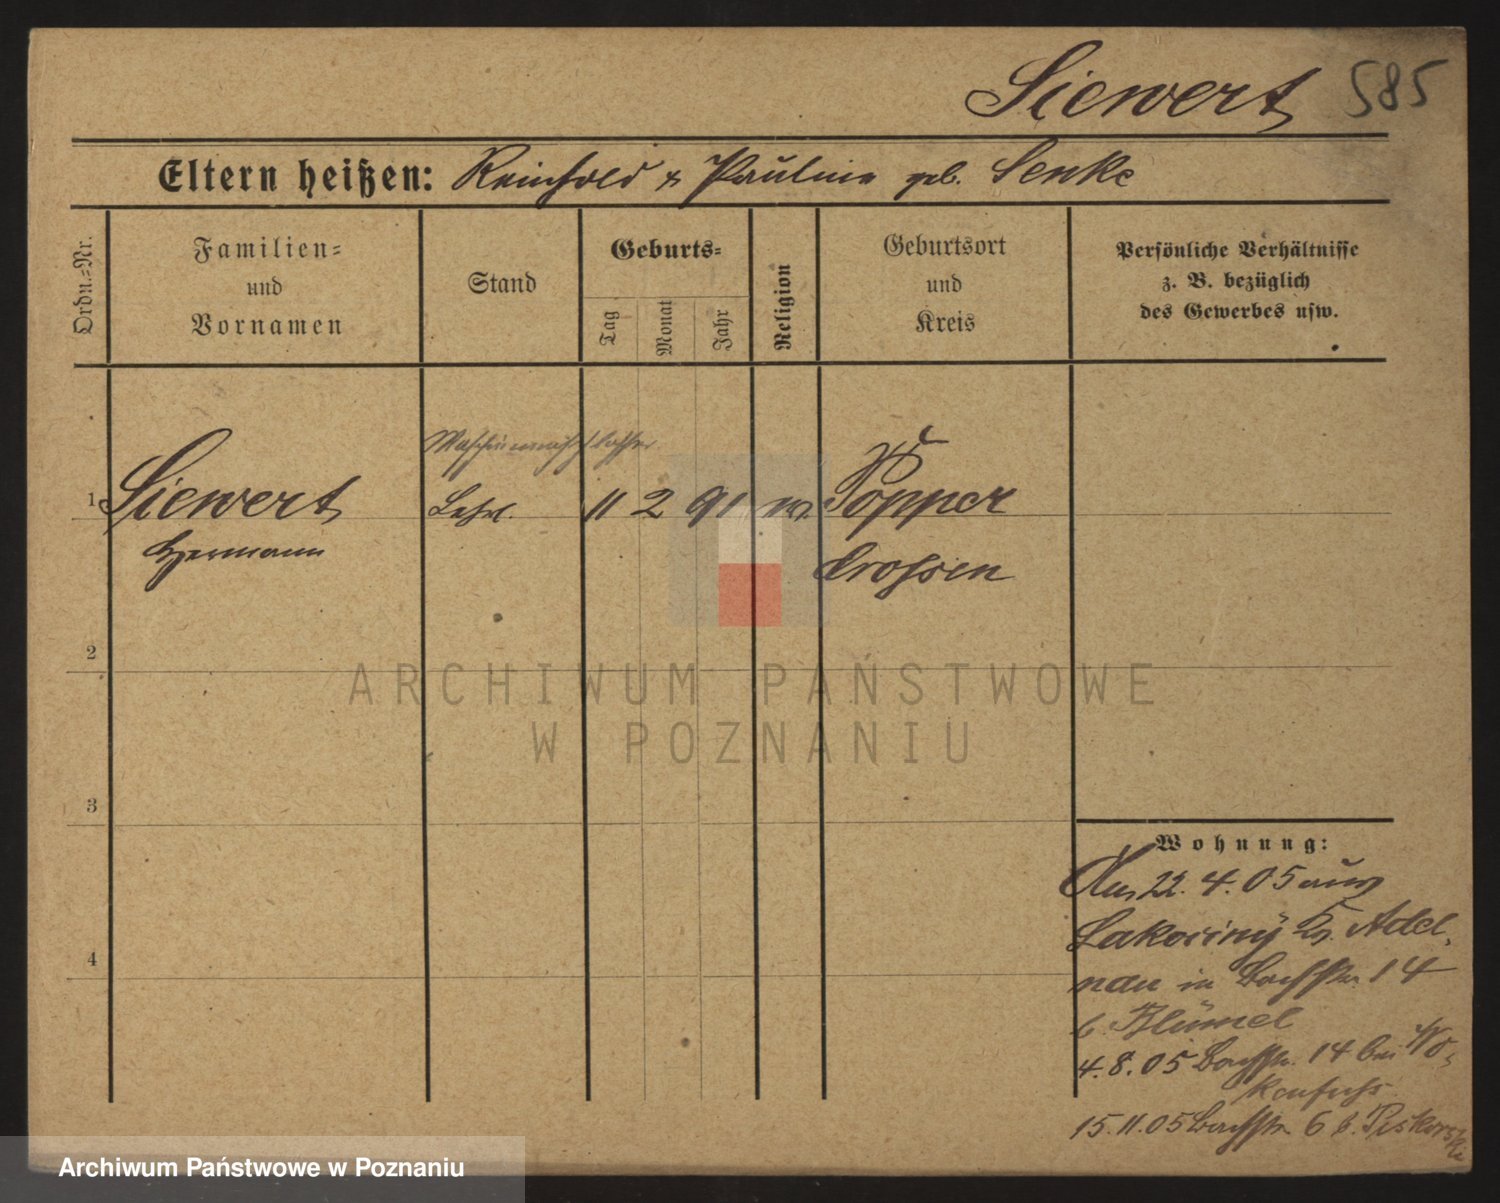 Siewert 585
Eltern heißen: Reinhold & Pauline geb. Senke
Ordn.=Nr.
Familien=
und
Vornamen
Stand
Geburts=
Tag
Monat
Jahr
Religion
Geburtsort
und
Kreis
Persönliche Verhältnisse
z. B. bezüglich
des Gewerbes usw.
Maschinenschlosser
1 Siewert Lehrl. 11 2 91 Popper
Hermann Crossen
2
3
4
Wohnung:
Am 22. 4. 05 aus
Kr. Adel-
nau in Bachstr. 14
b. Blümel
4. 8. 05 Bachstr. 14 bei
15. 11. 05 Bachstr. 6 b. Piskorski
ARCHIWUM PAŃSTWOWE
W POZNANIU
Archiwum Państwowe w Poznaniu